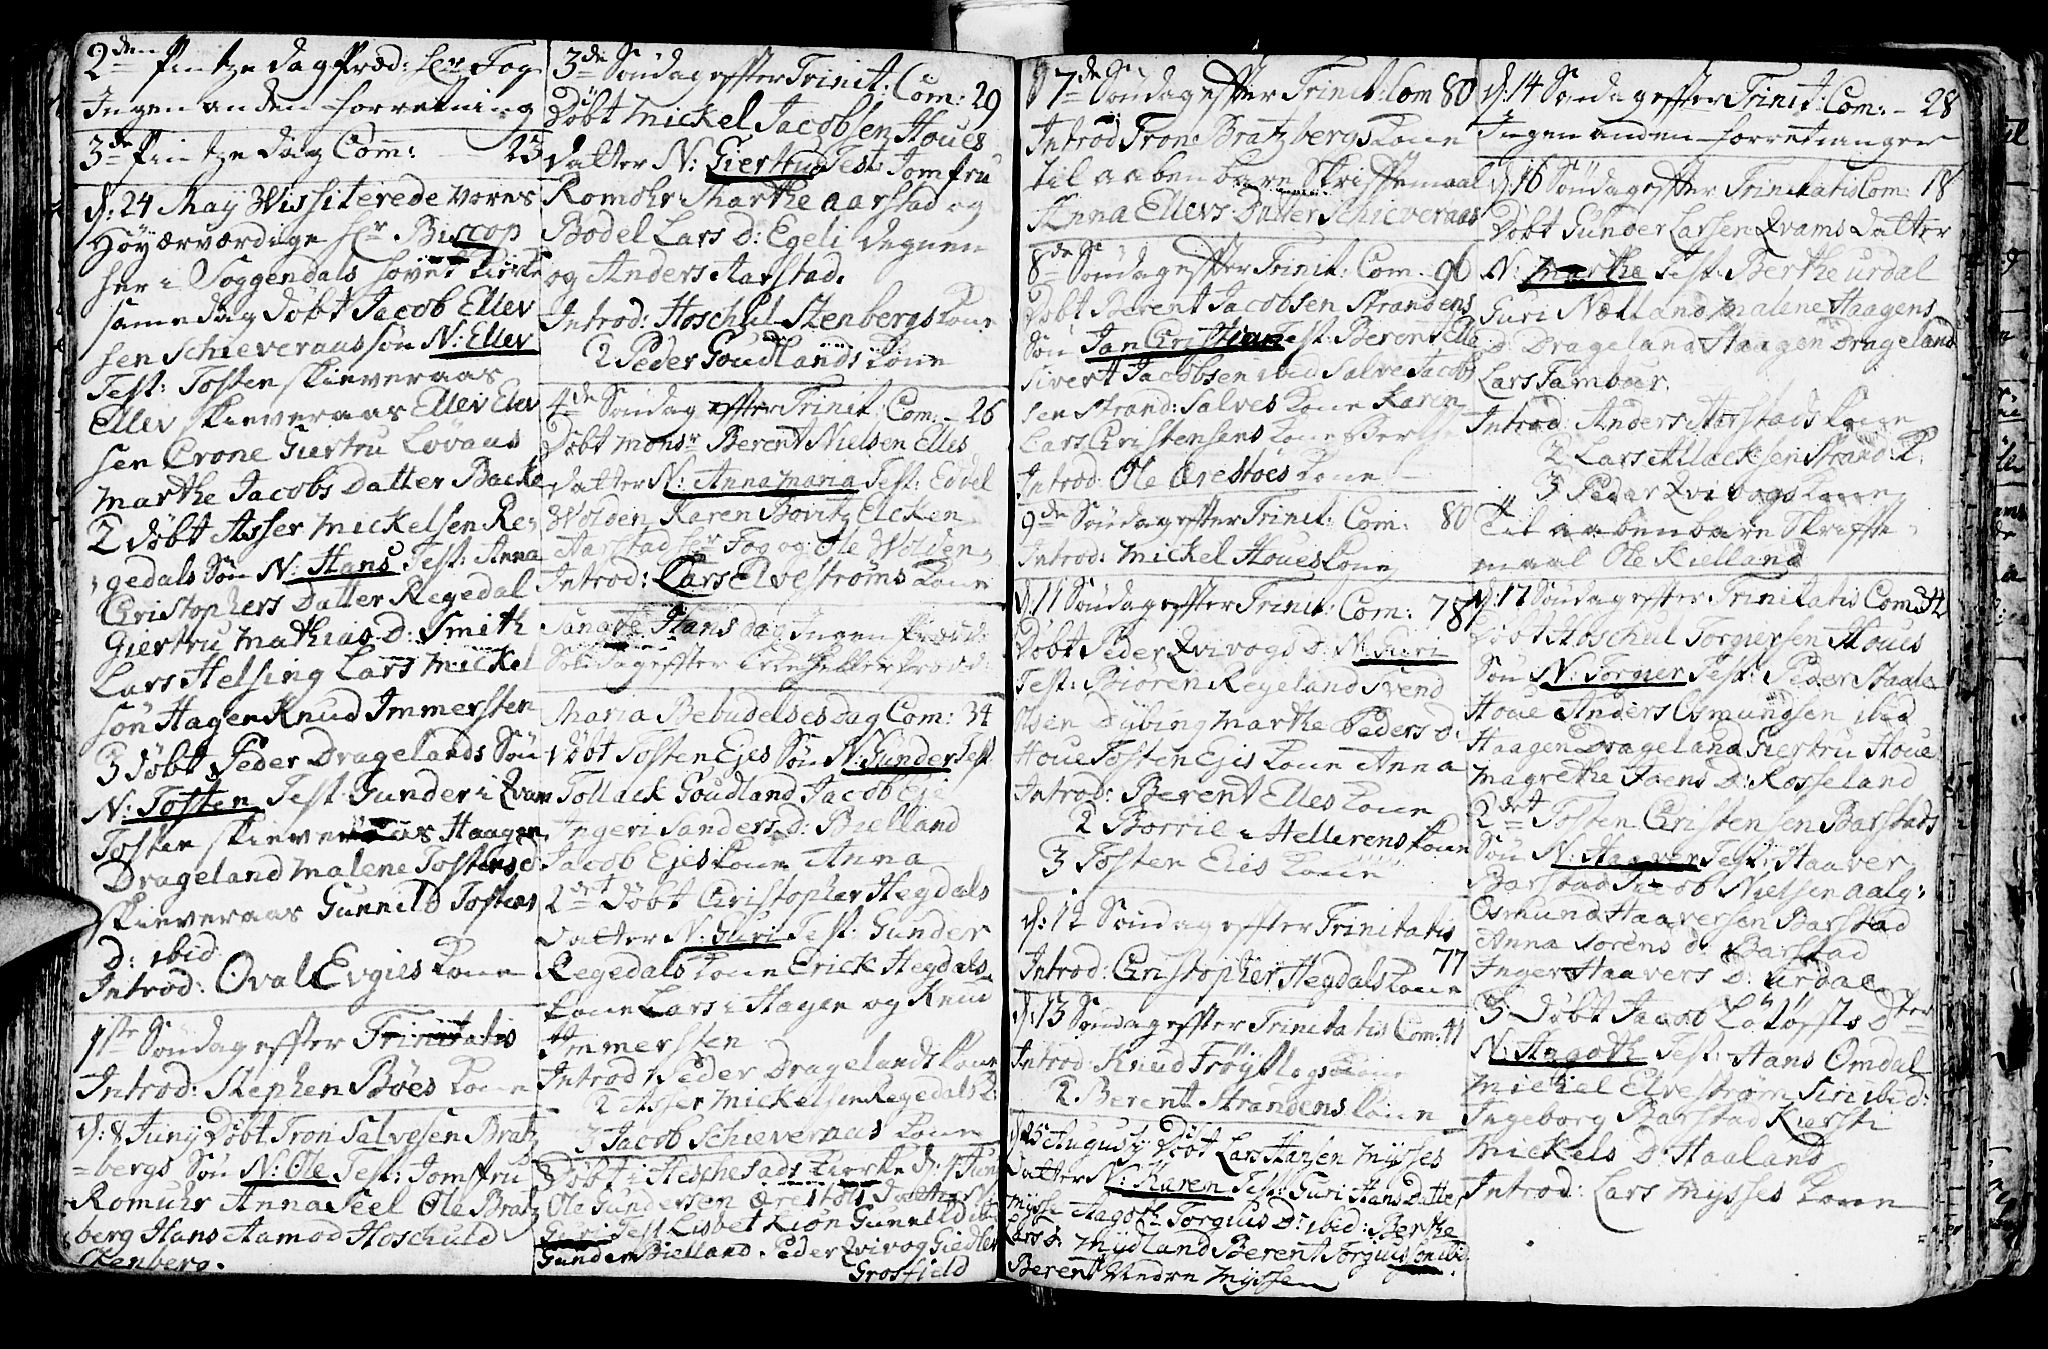 2den Pintzedag Præd: Hr Fog
Ingen anden forretning
3de Pintze dag Com: 23
d: 24 May Wissiterede vores
Höyærværdige Hr Biscop
her i Soggendals hoved Kirke
same dag döbt Jacob Ellev
sen Schieveraas sön N: Ellev
Test: Tosten skieveraas
Ellev skieveraas Ellev Elev
sen Crone Giertru Lövaas
Marthe Jacobs Datter Backe
2 döbt Asser Mickelsen Re,
gedals Sön N: Hans Test: Anna
Cristophers Datter Regedal
Giertru Mathias D: Smith
Lars Helsing Lars Mickel
sön Hagen Knud Immersten
3 döbt Peder Dragelands Sön
N: Tosten Test Gunder i Qvam
Tosten skieveraas Haagen
Drageland Malene Tostens d
skieveraas Gunnild Tostens
D: ibid
Introd: Oval Evgies Kone
1ste Söndag effter Trinitatis
Introd: Stephen Böes Kone
d: 8 Juny Döbt Tron Salvesen Bratz
=bergs Sön N: Ole Test: Jomfru
Romuhr Anna Seel Ole Bratz
berg Hans Aamod Hoschuld
Stenberg.
3de Söndag effter Trinit: Com: 29
Döbt Mickel Jacobsen Houes
Datter N: Giertru Test: Jomfru
Romohr Marthe Aarstad og
Bodel Lars D: Egeli degnen
og Anders Aarstad.
Introd: Hoschul Stenbergs Kone
2 Peder Goudlands Kone
4de Söndag effter Trinit: Com: 26
Döbt Monsr Berent Nielsen Elles
Datter N: Anna Maria Test: Edvel
Wolden Karen Bovitz Elcken
Aarstad Hr Fog og Ole Wolden,
Introd: Lars Elvestrøms Kone
Sancte Hans dag Ingen Præd:
Söndag effter
Maria Bebudelses Dag Com: 34
Döbt Tosten Eies Sön N: Gunder Test
Tollack Goudland Jacob Eje
Ingeri Sanders d: Bielland
Jacob Ejes Kone Anna
2det Döbt Cristopher Hegdals
Datter N: Guri Test: Gunder
Regedals Kone Erick Hegdals
Kone Lars i Hagen og Knud
Immersten
Introd 1 Peder Dragelands Kone
2 Asser Mickelsen Regedals K:
3 Jacob Schieveraas Kone
Döbt i Heschestads Kircke d: 4 Juny
Ole Gundersen Ærestøls Datter N:
Guri Test Lisbet Lion Gunnild ibid
Gunder Bielland. Peder Qvivog Giedler
Grosfield
7de Söndag effter Trinit: Com 80
Introd Tron Bratzbergs Kone
til aabenbare Skriftemaal
Anna Ellevs Datter Schieveraas
8de Söndag effter Trinit: Com: 90
Döbt Berent Jacobsen Strandens
Sön Jan Cristian Test: Beront Elle
Sivert Jacobsen ibid Salve Jacob
sen Strand: Salves Kone Karen
Lars Cristensens Kone Berthe
Introd: Ole Ærestöes Kone
9de Söndag effter Trinit: Com: 80
Introd: Mickel Houes Kone
d: 11 Söndag effter Trinit: Com: 78
Döbt Peder Qvivogs D: N: Guri
Test: Biören Regeland Svend
Olsen Dübing Marthe Peders D:
Houe Tosten Ejes Kone Anna
Introd: Berent Elles Kone
2 Borrile Hellerens Kone
3 Tosten Eies Kone
d: 12 Söndag effter Trinitatis
77
Introd: Cristopher Hegdals Kone
d: 13 Söndag effter Trinitatis Com: 41
Introd: Knud Fröytlogs Kone
2. Berent Strandens Kone
d: 25 Augusty Döbt Lars Hansen Mysses
Datter N: Karen Test: Guri Hans Datter
Mysse Aagoth Torgius Dr ibid: Berthe
Lars D: Mydland Berent Torgiussen ibid
Berent Undre Myssen
d: 14 Söndag effter Trinit: Com: - 28
Ingen anden forretninger
d: 16 Söndag effter Trinitatis Com: 18
Döbt Gunder Larsen Qvams Datter
N: Marthe Test: Berthe Urdal
Guri Netland Malene Haagens
D: Drageland Haagen Drageland
Lars Tambour.
Introd: Anders Aarstads Kone
2 Lars Allacksen Strand: K.
3 Peder Qvivogs Kone
Til aabenbare Skriffte,
maal Ole Kielland
d: 17 Söndag effter Trinitatis Com: 34
Döbt Hoschul Torgiersen Houes
Sön N: Torgier Test: Peder Staale
Houe Anders Osmundsen ibid
Haagen Drageland Giertru Houe
Magrethe Joens D: Rosseland
2det Tosten Cristensen Barstads
Sön N: Haaver Test: Haaver
Barstad Jacob Nielsen Aalg:
Osmund Haaversen Barstad
Anna Sorens d: Barstad
Inger Haavers D: Urdal
3. Döbt Jacob Lötöffts Dter
N: Aagothe Test: Hans Omdal
Mickel Elvestrøm Siri ibid:
Ingeborg Barstad Kiersti
Mickels D: Haaland
Introd: Lars Mysses Kone